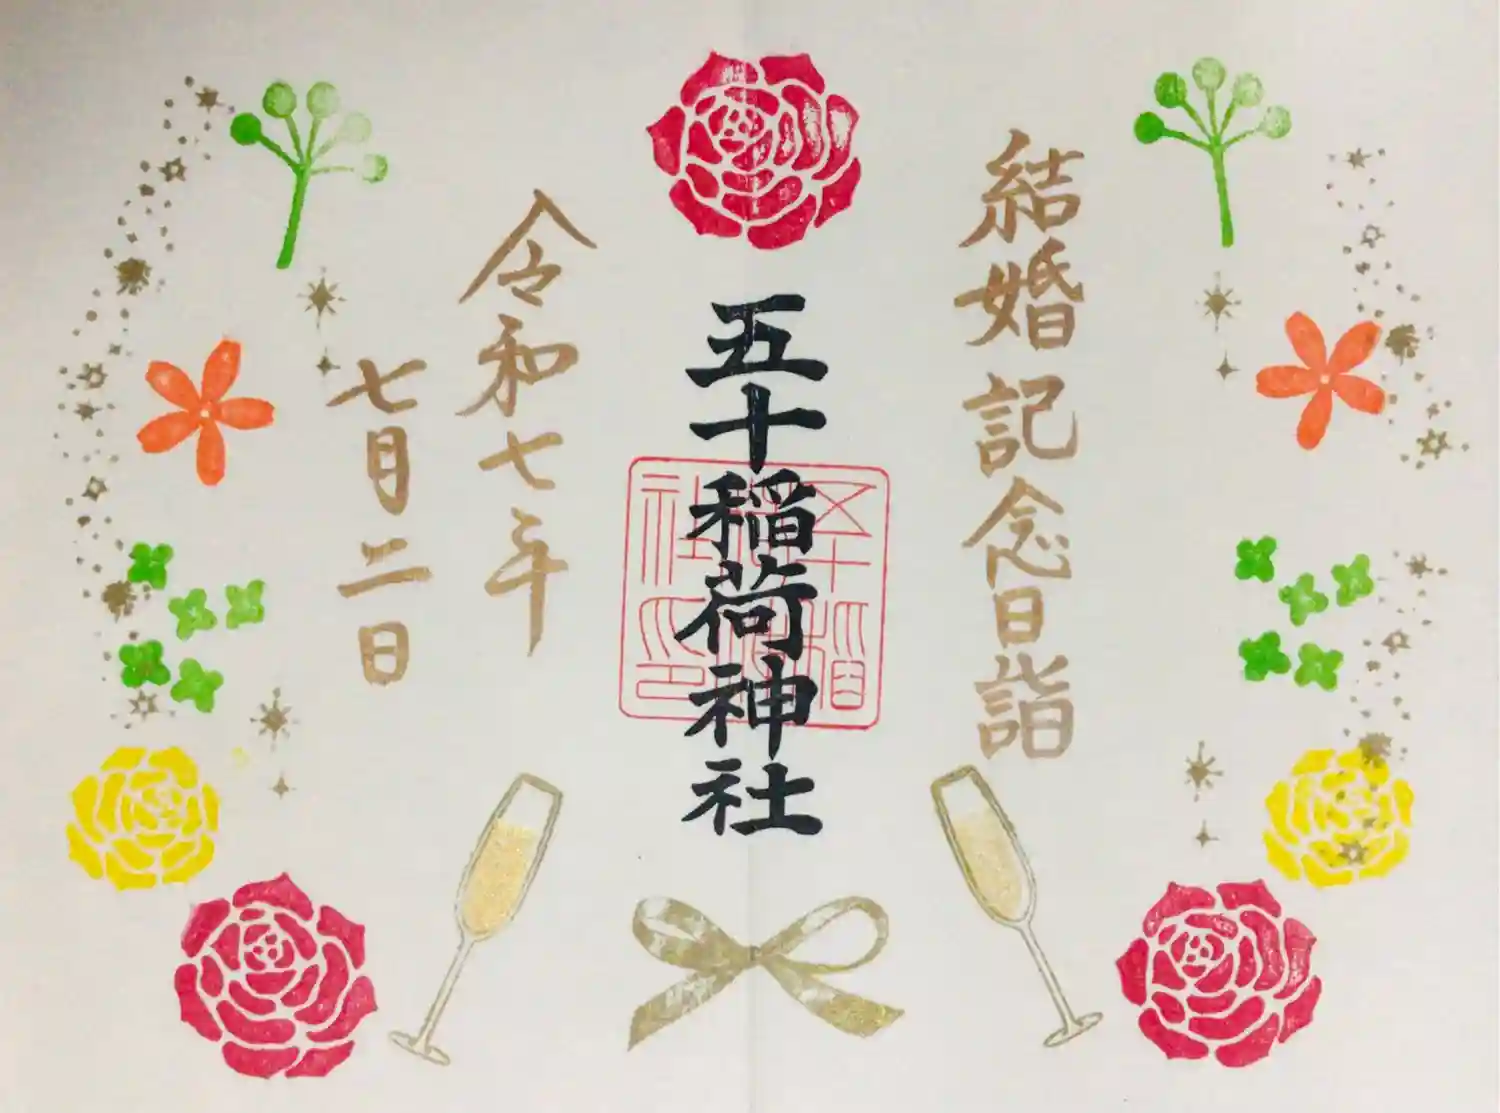 結婚記念日詣
五十稲荷神社
令和七年
七月二日